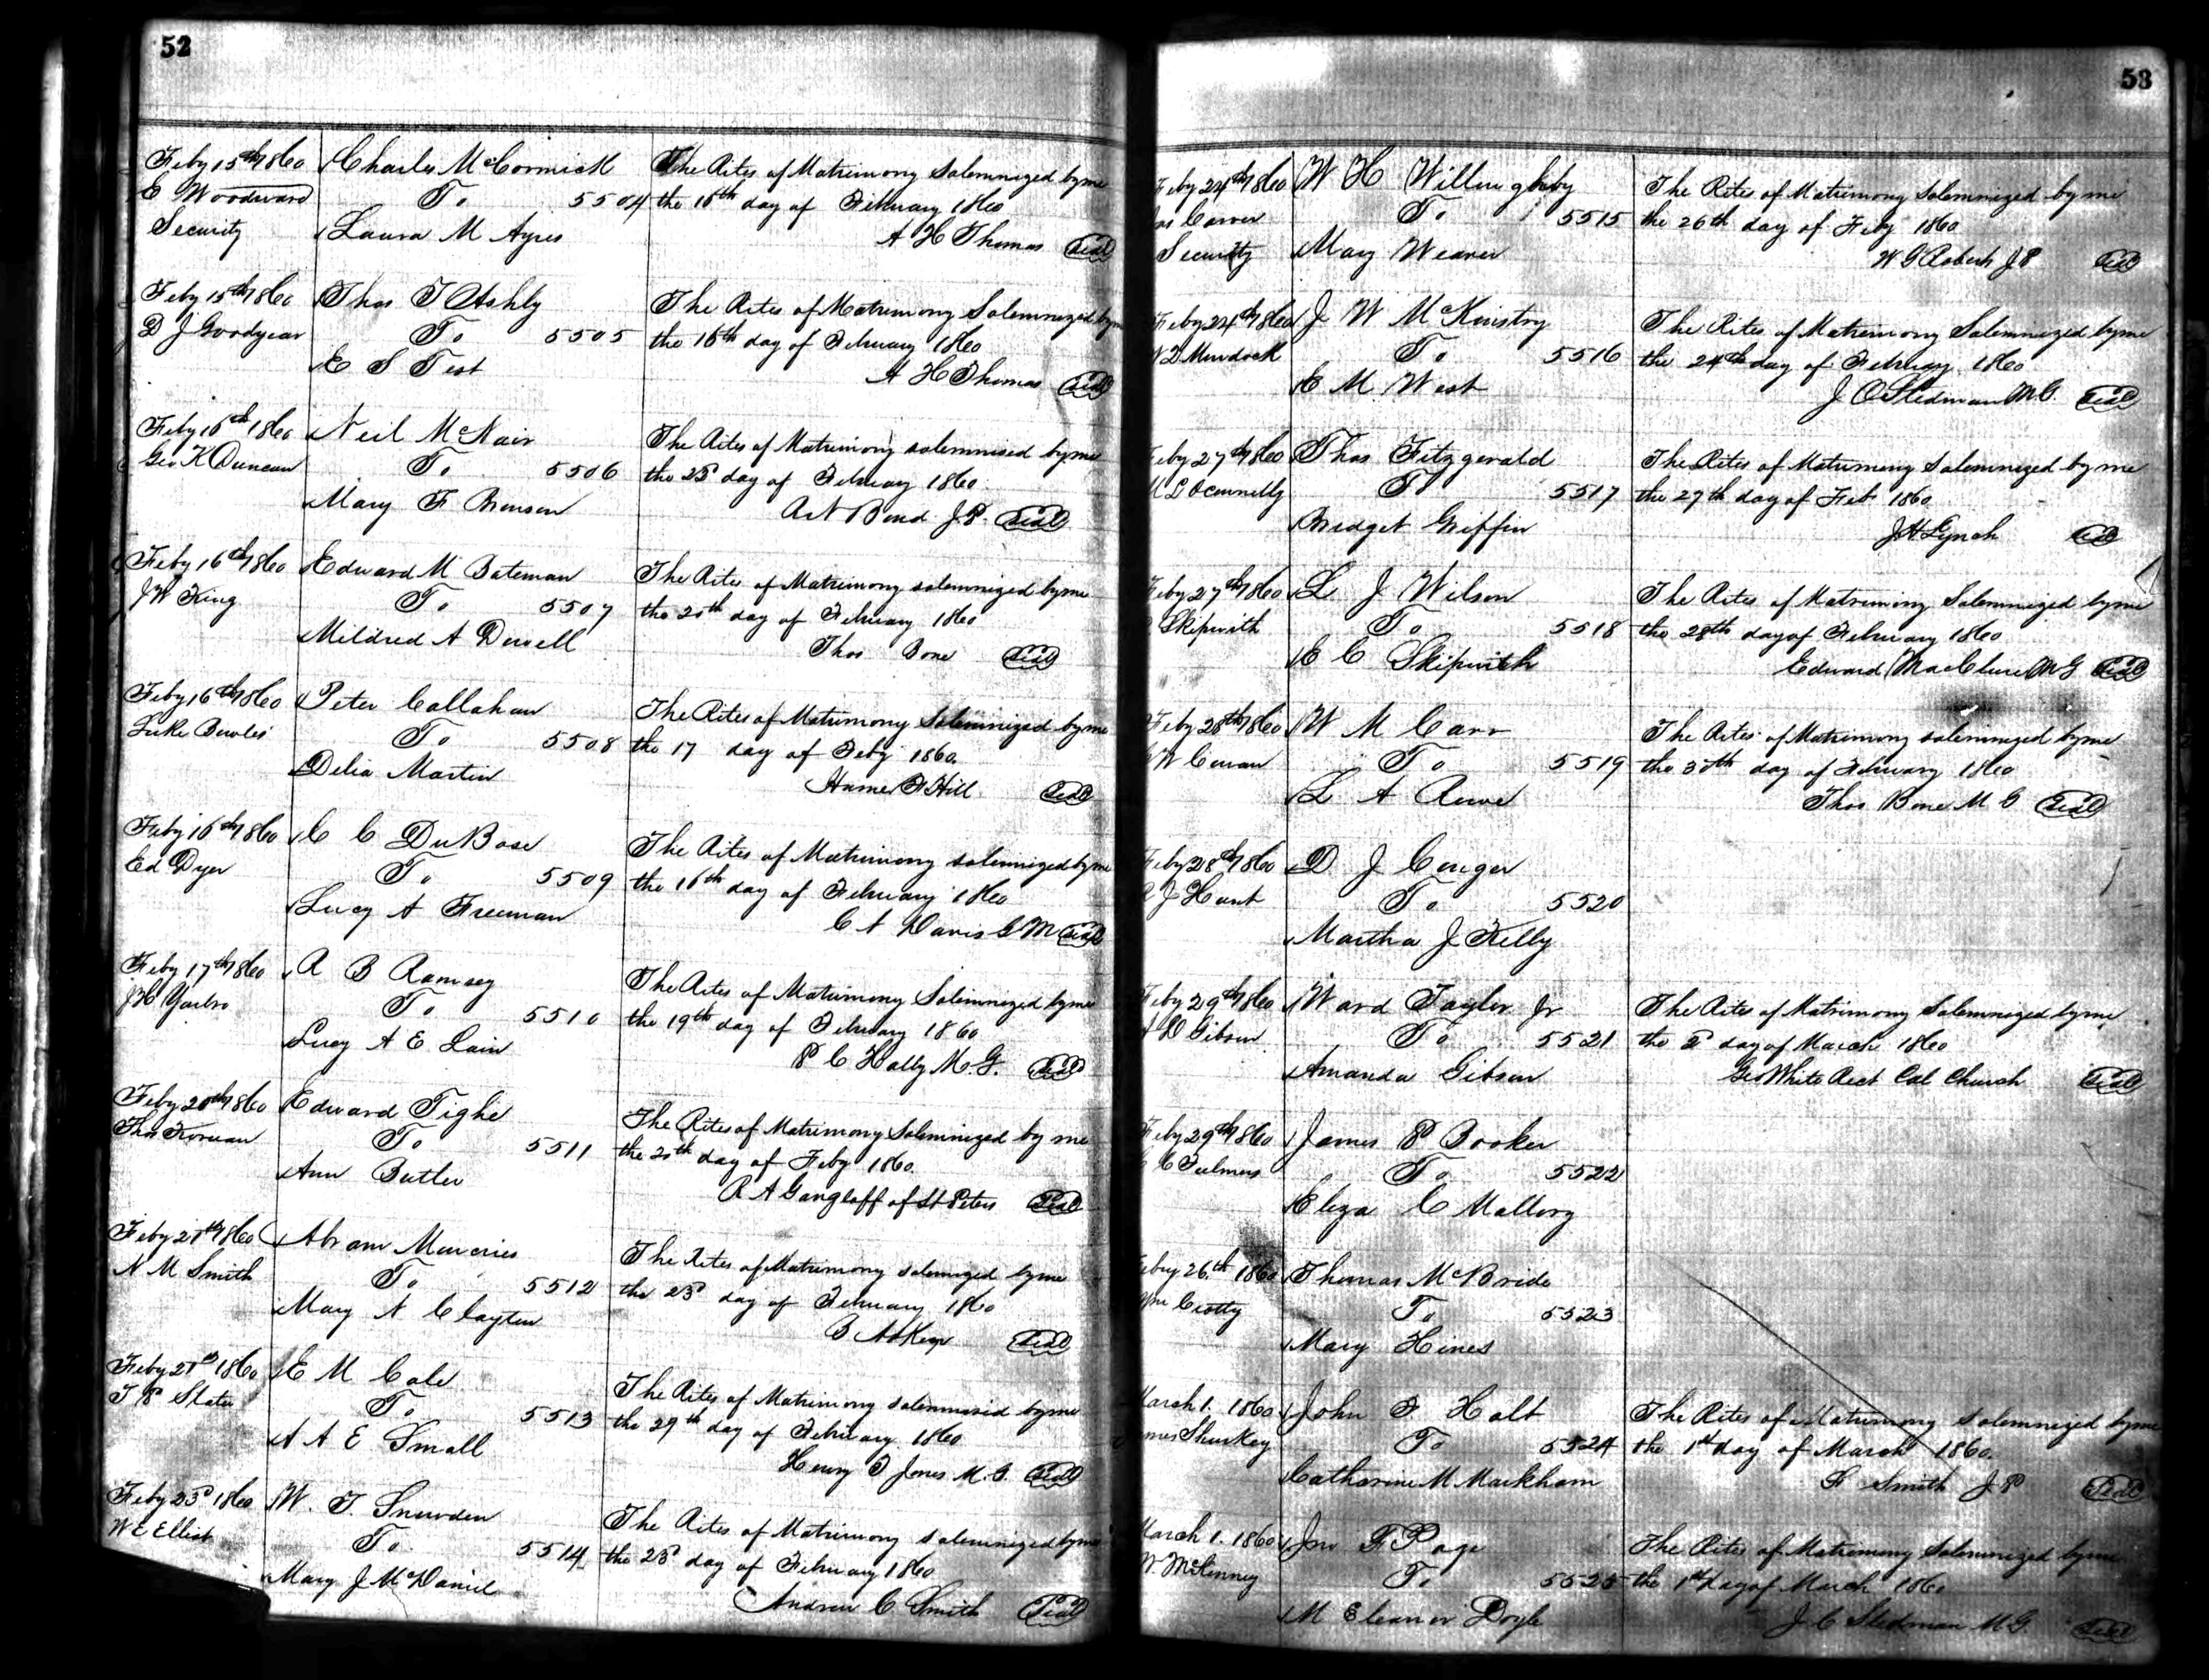 52
Feby 15th 1860 Charles McCormick The Rites of Matrimony Solemnized by me
E Woodward To 5504 the 16th day of February 1860
Security Laura M Ayres A H Thomas Seal
Feby 15th 1860 Thos T Ashly The Rites of Matrimony Solemnized by me
D J Goodyear To 5505 the 16th day of February 1860
E S Test A H Thomas Seal
Feby 16th 1860 Neil McNair The Rites of Matrimony solemnised by me
Geo K Duncan To 5506 the 23d day of February 1860
Mary F Bronson Bond J.P. Seal
Feby 16th 1860 Edward M Bateman The Rites of Matrimony solemnized by me
J W King To 5507 the 20th day of February 1860
Mildred A Dowell Thos Bone Seal
Feby 16th 1860 Peter Callahan The Rites of Matrimony Solemnized by me
Luke Bowles To 5508 the 17 day of Feby 1860
Delia Martin Hume F Hill Seal
Feby 16th 1860 C C DuBose The Rites of Matrimony solemnized by me
Ed Dyer To 5509 the 16th day of February 1860
Lucy A Freeman C A Davis G M Seal
Feby 17th 1860 R B Ramsey The Rites of Matrimony Solemnized by me
J H Yarbro To 5510 the 19th day of February 1860
Lucy A E Lain P C Holly M.G. Seal
Feby 20th 1860 Edward Tighe The Rites of Matrimony Solemnized by me
Thos To 5511 the 20th day of Feby 1860
Ann Butler R A Gangloff of St Peters Seal
Feby 21th 1860 Abram The Rites of Matrimony solemnized by me
N M Smith To 5512 the 23d day of February 1860
Mary A Clayton Seal
Feby 21st 1860 E M Cole The Rites of Matrimony solemnised by me
T P Slater To 5513 the 29th day of February 1860
A A E Small Henry F Jones M.G. Seal
Feby 23d 1860 W. T. Snowden The Rites of Matrimony solemnized by me
W E Elliot To 5514 the 23d day of February 1860
Mary J McDaniel Andrew C Smith Seal
53
Feby 24th 1860 W H Willoughby The Rites of Matrimony Solemnized by me
Carver To 5515 the 26th day of Feby 1860
Security Mary Weaver W G Roberts J P Seal
Feby 24th 1860 J W McKinstry The Rites of Matrimony Solemnized by me
Murdock To 5516 the 24th day of February 1860
E M West J O Stedman M.G. Seal
Feby 27th 1860 Thos Fitzgerald The Rites of Matrimony Solemnized by me
Oconnelly To 5517 the 27th day of Feb 1860
Bridget Griffin J H Lynch Seal
Feby 27th 1860 L J Wilson The Rites of Matrimony Solemnized by me
Skipwith To 5518 the 28th day of February 1860
E C Skipwith Edward MacClure M G Seal
Feby 28th 1860 W M Carr The Rites of Matrimony solemnized by me
To 5519 the 30th day of February 1860
L A Rowe Thos Bone M G Seal
Feby 28th 1860 D J Conger
J Hunt To 5520
Martha J Kelly
Feby 29th 1860 Ward Taylor Jr The Rites of Matrimony Solemnized by me
Gibson To 5521 the 2d day of March 1860
Amanda Gibson Geo White Rect Cal Church Seal
Feby 29th 1860 James P Booker
C Fulmer To 5522
Eliza C Mallory
Feby 26.th 1860 Thomas McBride
Wm Crotty To 5523
Mary Hines
March 1. 1860 John F Holt The Rites of Matrimony Solemnized by me
Sharkey To 5524 the 1st day of March 1860.
Catharine M Markham Smith J P Seal
March 1. 1860 Jno F Page The Rites of Matrimony Solemnized by me
W. McKenney To 5525 the 1st day of March 1860
M Eleanor Doyle J C Stedman M G. Seal